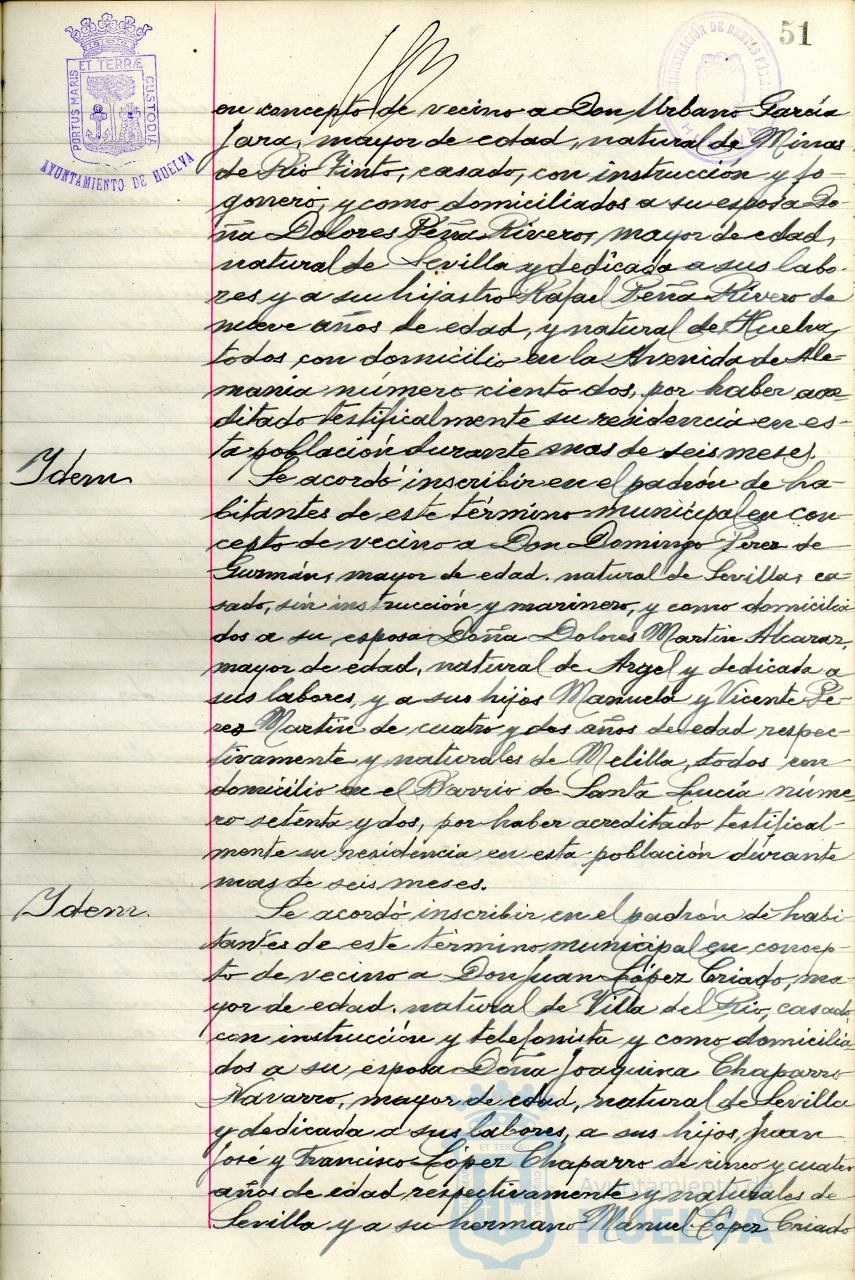 51
PORTUS MARIS ET TERRÆ CUSTODIA
AYUNTAMIENTO DE HUELVA
ADMINISTRACIÓN DE RENTAS
en concepto de vecino a Don Urbano García
Jara, mayor de edad, natural de Minas
de Rio Tinto, casado, con instrucción y fo-
gonero, y como domiciliados a su esposa Do-
ña Dolores Peña Rivero, mayor de edad,
natural de Sevilla y dedicada a sus labo-
res y a su hijastro Rafael Peña Rivero de
nueve años de edad, y natural de Huelva,
todos con domicilio en la Avenida de Ale-
mania número ciento dos, por haber acre-
ditado testificalmente su residencia en es-
ta población durante mas de seis meses.
Idem
Se acordó inscribir en el padrón de ha-
bitantes de este término municipal en con
cepto de vecino a Don Domingo Perez de
Guzmán, mayor de edad, natural de Sevilla, ca-
sado, sin instrucción y marinero, y como domicilia
dos a su esposa Doña Dolores Martin Alcaraz,
mayor de edad, natural de Argel y dedicada a
sus labores, y a sus hijos Manuela y Vicente Pé-
rez Martin de cuatro y dos años de edad respec-
tivamente y naturales de Melilla, todos con
domicilio en el Barrio de Santa Lucía núme-
ro setenta y dos, por haber acreditado testifical-
mente su residencia en esta población durante
mas de seis meses.
Idem.
Se acordó inscribir en el padrón de habi
tantes de este término municipal en concep-
to de vecino a Don Juan López Criado, ma-
yor de edad, natural de Villa del Rio, casado,
con instrucción y telefonista y como domicilia-
dos a su esposa Doña Joaquina Chaparro
Navarro, mayor de edad, natural de Sevilla
y dedicada a sus labores, a sus hijos, Juan
José y Francisco López Chaparro de cinco y cuatro
años de edad respectivamente y naturales de
Sevilla y a su hermano Manuel López Criado
Ayuntamiento de
HUELVA